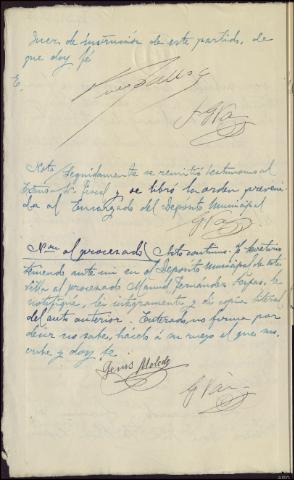 Juez de instrucción de este partido, de
que doy fé
E.
Nota Seguidamente se remitió testimonio al
Fiscal y se libró la orden preveni-
da al Encargado del Depósito Municipal
Non al procesado / Acto continuo. El Secretario
teniendo ante mi en el Depósito Municipal de esta
villa al procesado Manuel Fernandez, le
notifiqué, leí integramente y dí copia literal
del auto anterior. Enterado, no firma por
decir no sabe, hácelo á su ruego el que sus-
cribe y doy fe.
Genus Moledo